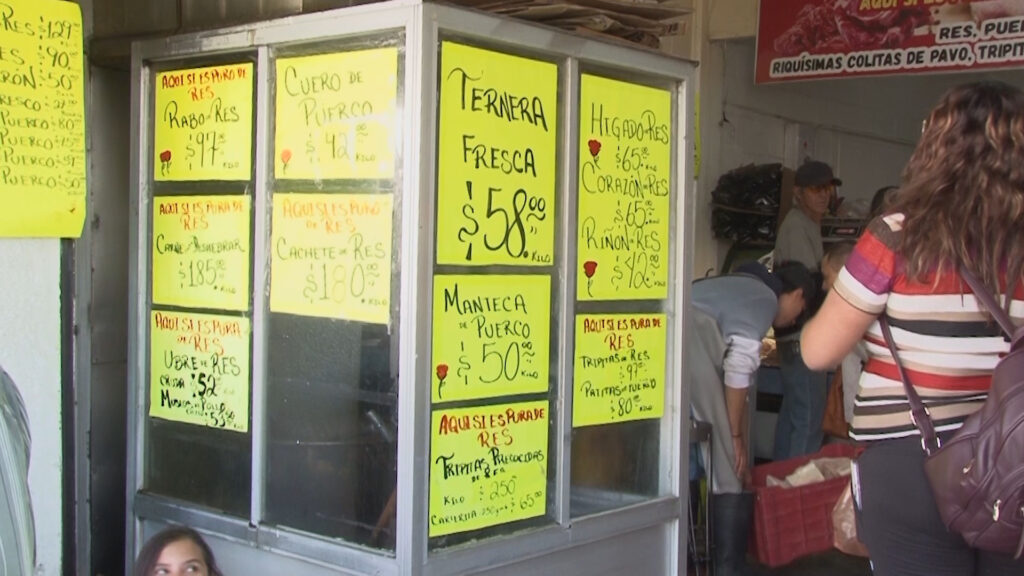 RES $
ES $ 90.
RÓN $ 50
RESCO $
PUERCO $
PUERCO
PUERCO $
PUERCO $ 50
AQUI SI ES PURA DE
RES
RABO DE RES
$ 97.00 KILO
AQUI SI ES PURA DE
RES
CARNE P/ DESHEBRAR
$ 185.00 KILO
AQUI SI ES PURA DE
RES
UBRE DE RES
CRUDA $ 52
CUERO DE
PUERCO
$ 42.00 KILO
AQUI SI ES PURA DE
RES
CACHETE DE RES
$ 180.00 KILO
TERNERA
FRESCA
$ 58.00 KILO
MANTECA
DE PUERCO
$ 50.00 KILO
AQUI SI ES PURA DE
RES
TRIPITAS PRECOCIDAS
DE RES
KILO $ 250
$ 65.00
HIGADO DE RES
$ 65.00 KILO
CORAZÓN DE RES
$ 65.00 KILO
RIÑON DE RES
$ 42.00 KILO
AQUI SI ES PURA DE
RES
TRIPITAS DE RES
$ 97.00 KILO
PATITAS DE PUERCO
$ 80.00 KILO
AQUI SI ES
RES, PUER
RIQUÍSIMAS COLITAS DE PAVO, TRIPIT